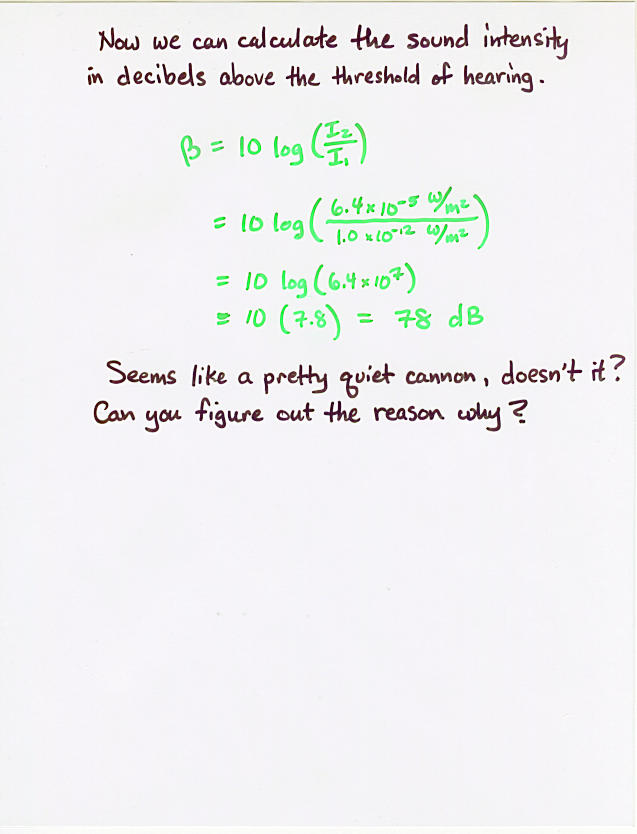 Now we can calculate the sound intensity
in decibels above the threshold of hearing.
β = 10 log (I₂/I₁)
= 10 log (6.4 x 10⁻⁵ W/m² / 1.0 x 10⁻¹² W/m²)
= 10 log (6.4 x 10⁷)
= 10 (7.8) = 78 dB
Seems like a pretty quiet cannon, doesn't it?
Can you figure out the reason why?